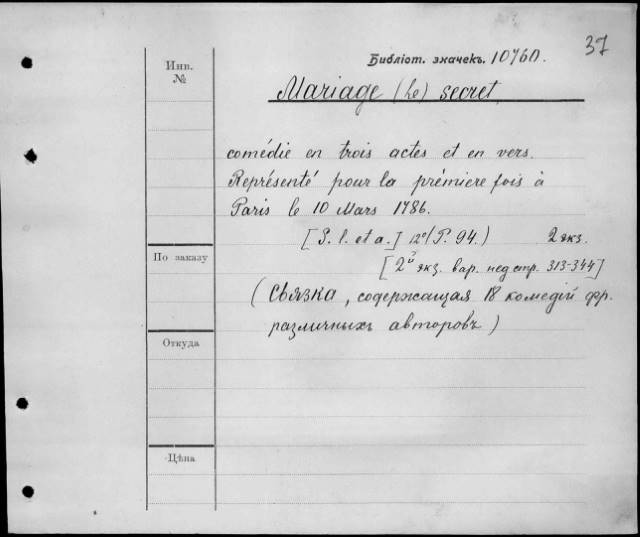 37
Библіот. значекъ. 10760.
Инв.
№
Mariage (Le) secret,
comédie en trois actes et en vers.
Représenté pour la prémiere fois à
Paris le 10 Mars 1786.
[S. l. et a.] 12º (P. 94.) 2 экз.
[2й экз. вар. пед стр. 313-344]
По заказу
(Связка, содержащая 18 комедій фр.
различныхъ авторовъ)
Откуда
Цѣна